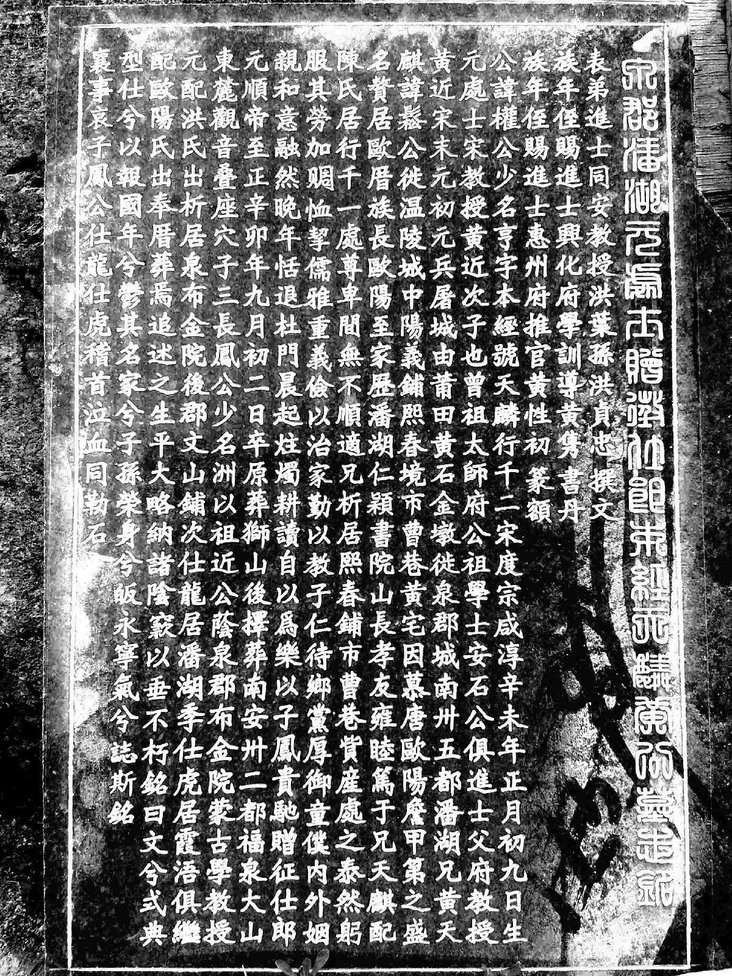 泉郡潘湖元處士贈徵仕郎本經天麟黃公墓志銘
表弟進士同安教授洪葉孫洪貞忠 撰文
族年侄賜進士興化府學訓導黃雋 書丹
族年侄賜進士惠州府推官黃性初 篆額
公諱權公少名亨字本經號天麟行千二宋度宗咸淳辛未年正月初九日生
元處士宋教授黃近次子也曾祖太師府公祖學士安石公俱進士父府教授
黃近宋末元初元兵屠城由莆田黃石金墩徙泉郡城南卅五都潘湖兄黃天
麒諱鬆公徙温陵城中陽義鋪熙春境市曹巷黃宅因慕唐歐陽詹甲第之盛
名贅居歐厝族長歐陽至家歷潘湖仁穎書院山長孝友雍睦篤于兄天麒配
陳氏居行千一處尊卑間無不順適兄析居熙春鋪市曹巷貲産處之泰然躬
服其勞加賙恤挈儒雅重義儉以治家勤以教子仁待鄉黨厚御童僕内外姻
親和意融然晚年恬退杜門晨起炷燭耕讀自以爲樂以子鳳貴馳贈征仕郎
元順帝至正辛卯年九月初二日辛原葬獅山後擇葬南安卅二都福泉大山
東麓觀音叠座穴子三長鳳公少名洲以祖近公蔭泉郡布金院蒙古學教授
元配洪氏出析居泉布金院後郡文山鋪次仕龍居潘湖季仕虎居霞浯俱繼
配歐陽氏出奉厝葬焉追述之生平大略納諸陰竅以垂不朽銘曰文兮式典
型仕兮以報國年兮鬱其名家兮子孫榮身兮皈永寧氣兮誌斯銘
襄事哀子鳳公仕龍仕虎稽首泣血同勒石